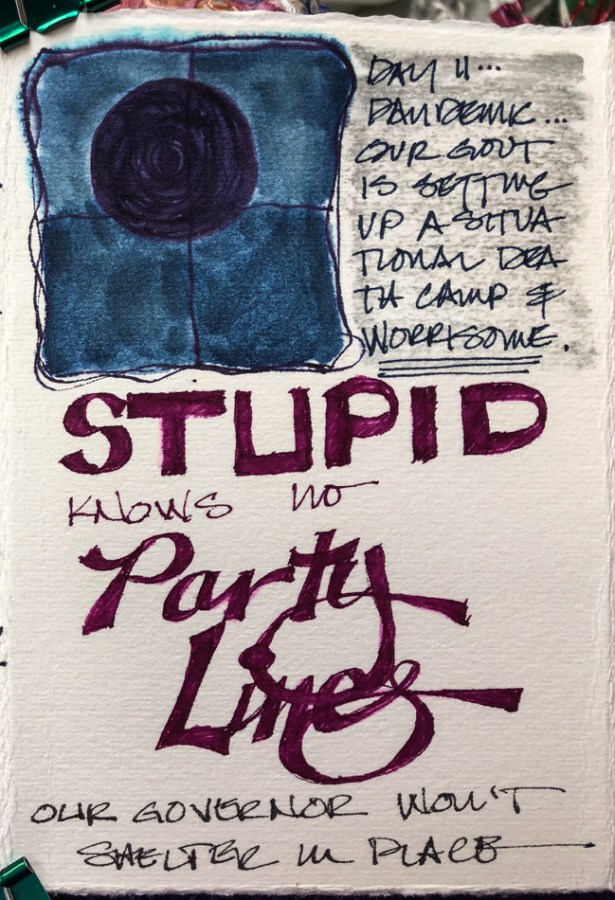 DAY 11...
PANDEMIC...
OUR GOVT
IS SETTING
UP A SITUA
TIONAL DEA
TH CAMP &
WORRISOME.
STUPID
KNOWS NO
Party
Lines
OUR GOVERNOR WON'T
SHELTER IN PLACE